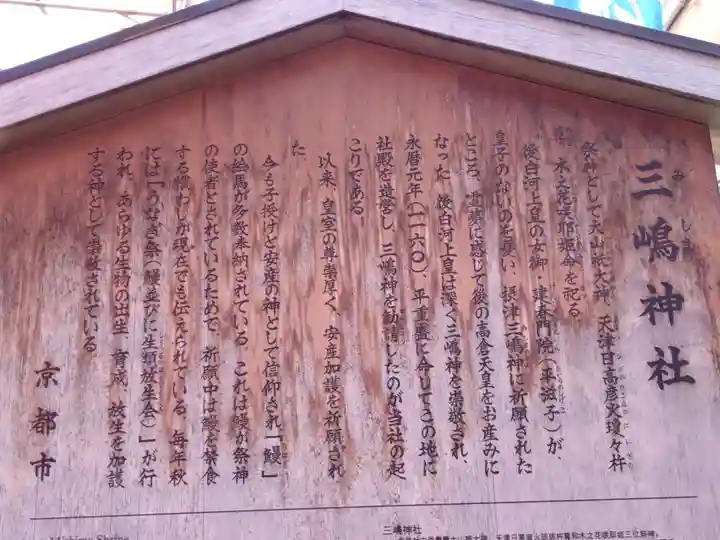 三嶋神社
みしま
祭神として大山祇大神、天津日高彦火瓊々杵
尊、木之花咲耶姫命を祀る。
後白河上皇の女御・建春門院（平滋子）が、
皇子のないのを憂い、摂津三嶋神に祈願された
ところ、霊夢に感じて後の高倉天皇をお産みに
なった。後白河上皇は深く三嶋神を崇敬され、
永暦元年（一一六〇）、平重盛に命じてこの地に
社殿を造営し、三嶋神を勧請したのが当社の起
こりである。
以来、皇室の尊崇厚く、安産加護を祈願され
た。
今も子授けと安産の神として信仰され「鰻」
の絵馬が多数奉納されている。これは鰻が祭神
の使者とされているためで、祈願中は鰻を禁食
する慣わしが現在でも伝えられている。毎年秋
には「うなぎ祭（鰻並びに生類放生会）」が行
われ、あらゆる生物の出生、育成、放生を加護
する神として崇敬されている。
京都市
Mishima Shrine
三嶋神社